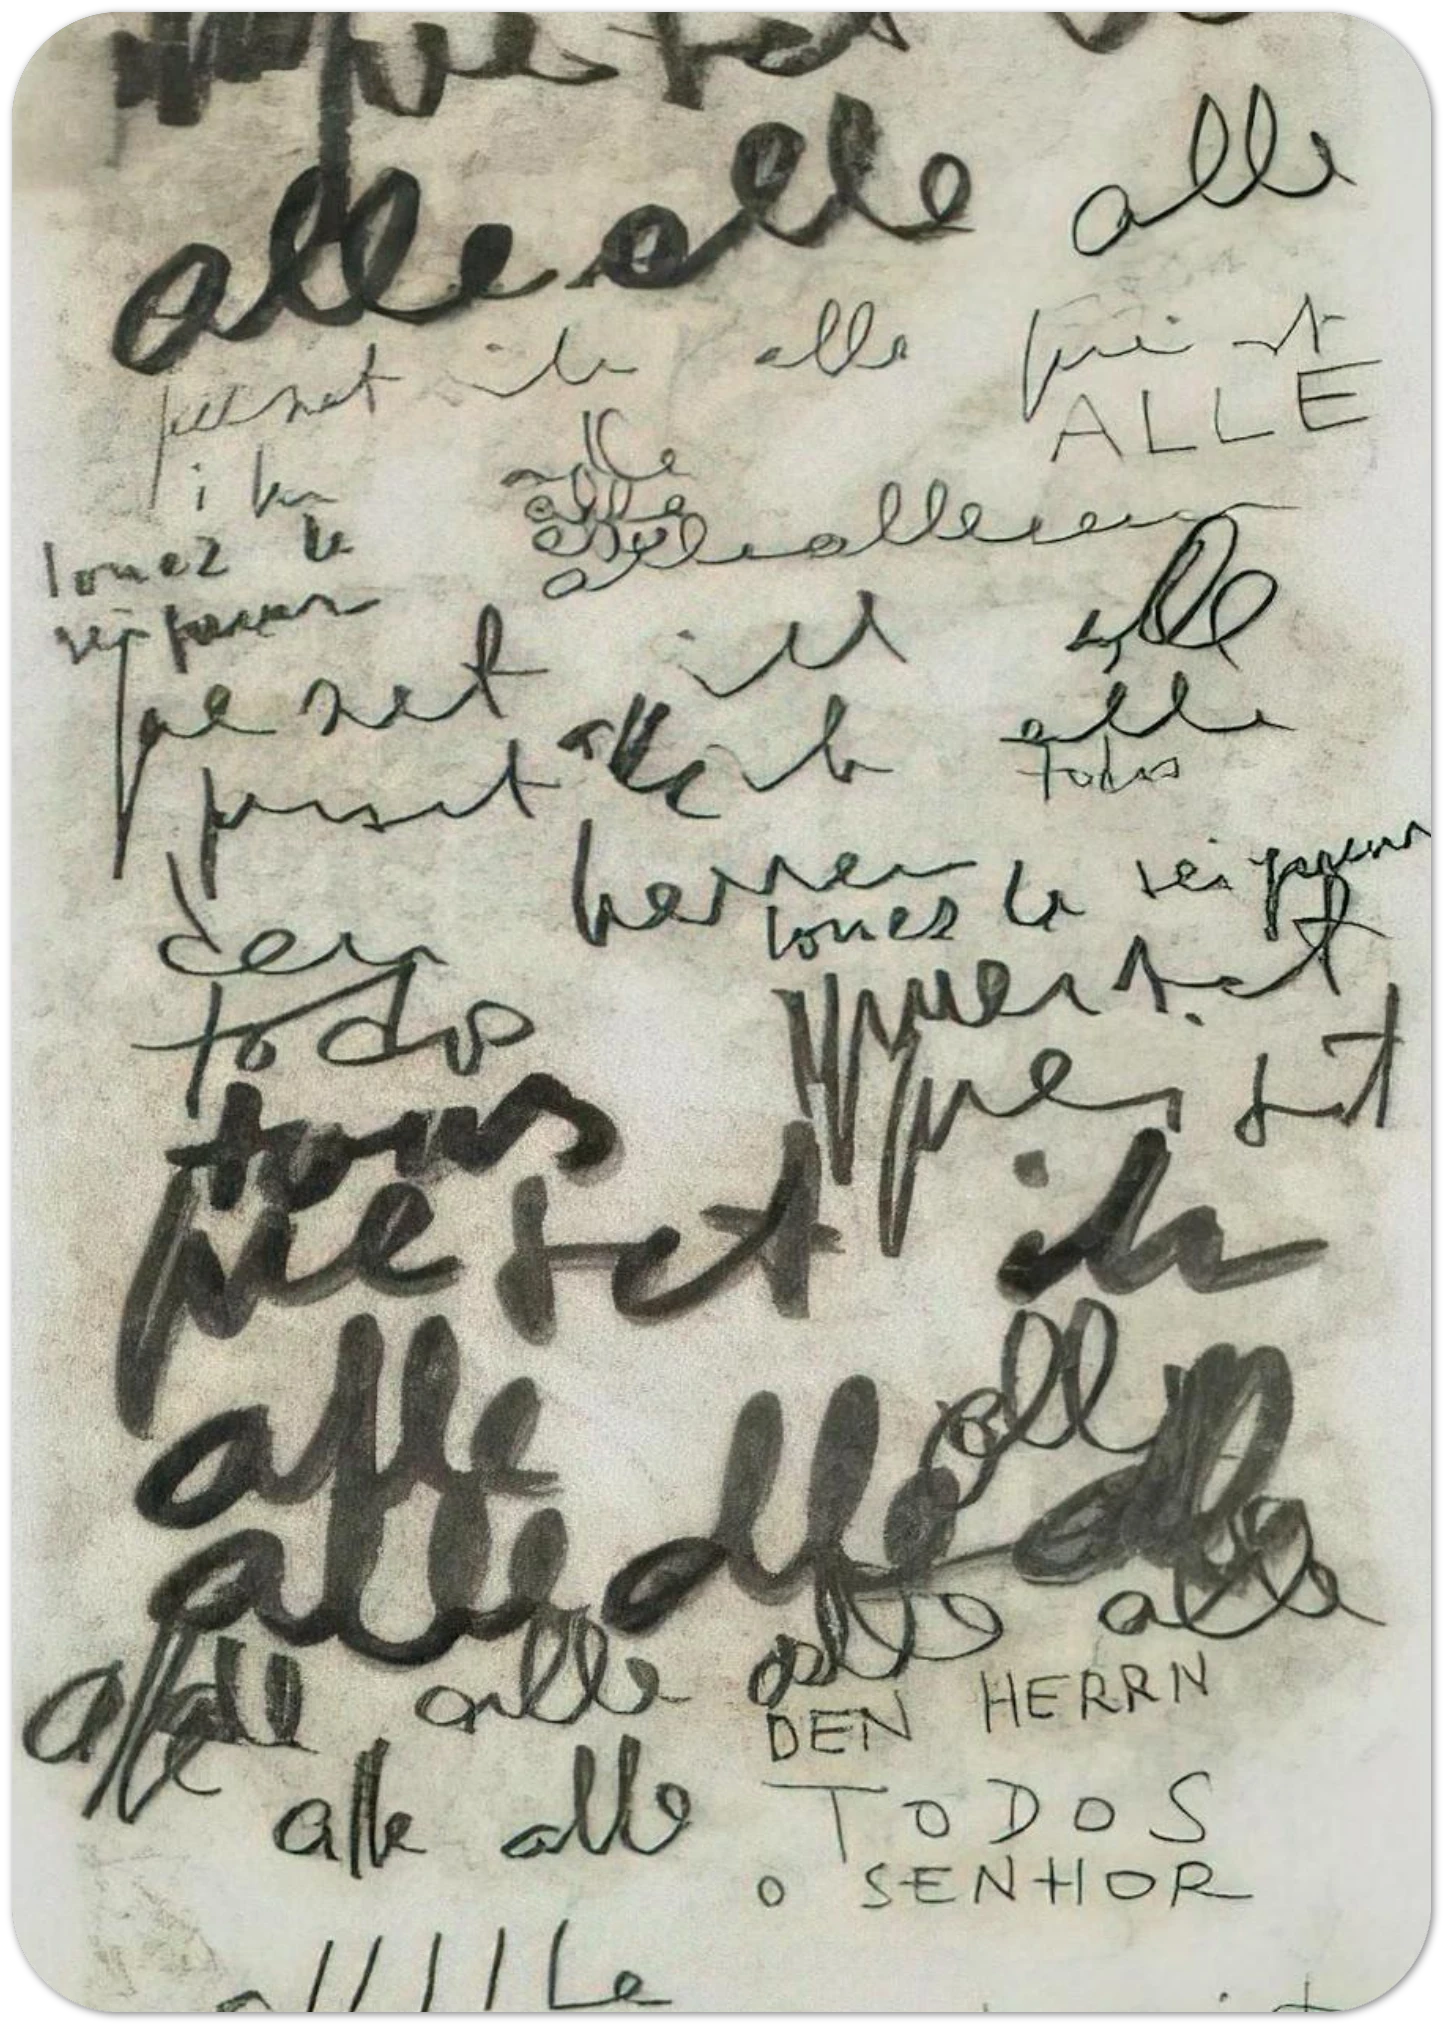 alle alle alle
preiset ihr alle preiset
ALLE
ihr
alle
louez le
alle
seigneur
alle alle
preiset ihr alle
alle
preiset alle ihr
todos
herren
louez le seigneur
den
preiset
todos
preiset
tous
preiset ihr
alle
alle
alle alle alle
alle alle alle alle
DEN HERRN
alle alle
TODOS
O SENHOR
allllle